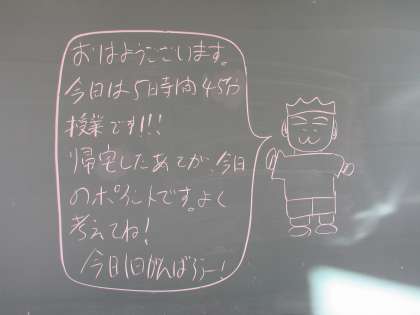 おはようございます。
今日は5日時間45分
授業です!!!
帰宅したあとが、今日
のポイントです。よく
考えてね!
今日1日がんばろう!